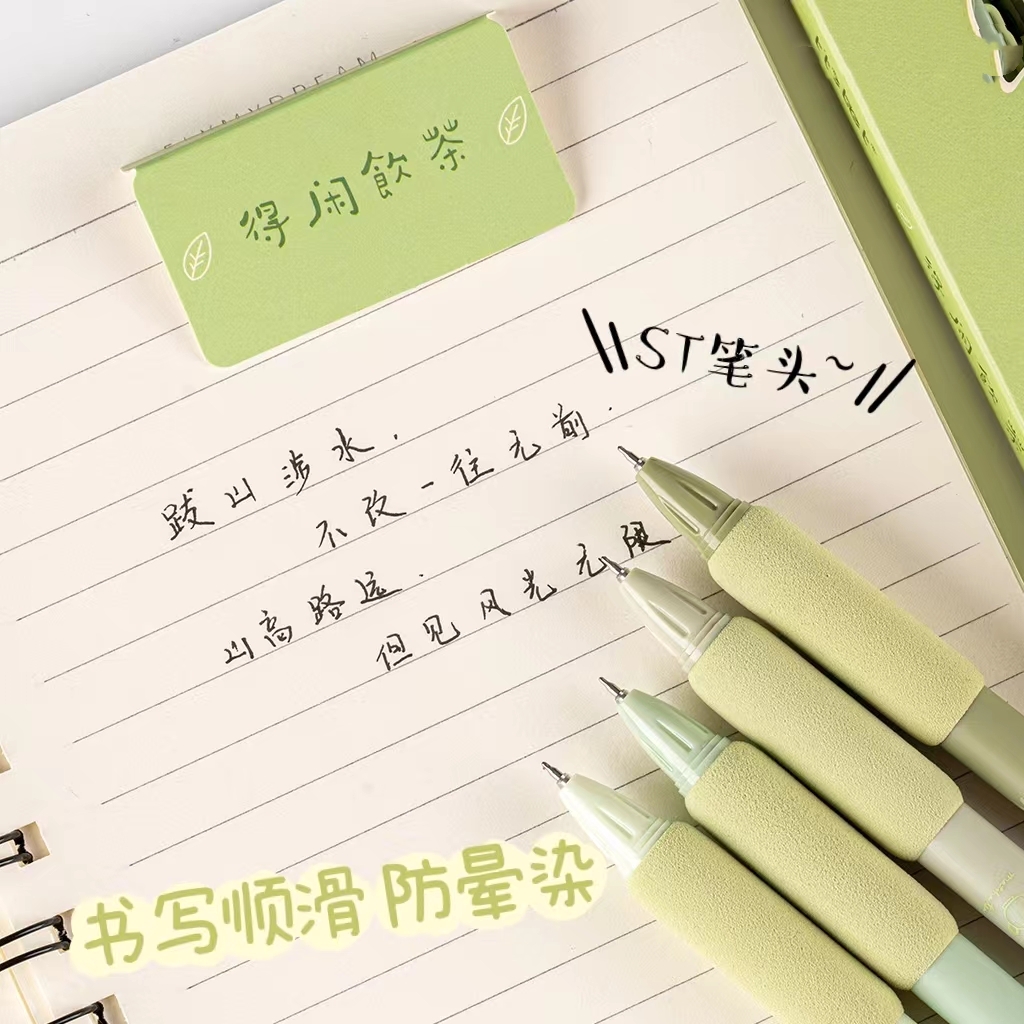 得闲飲茶
ST笔头~
跋山涉水.
不改一往无前.
山高路远.
但见风光无限
书写顺滑 防晕染